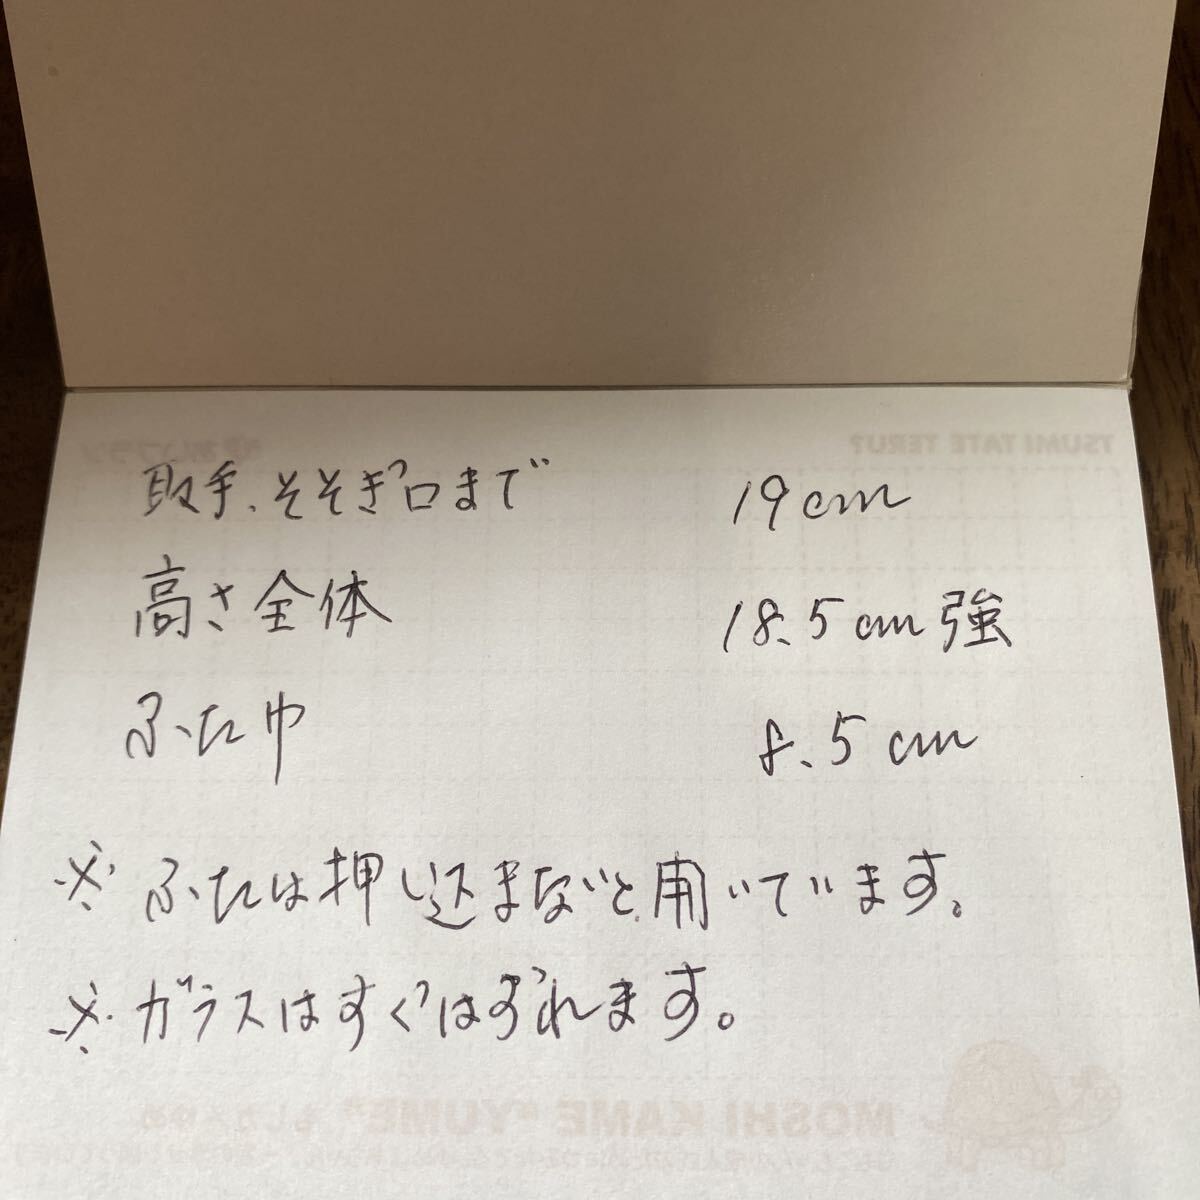 取手、そそぎ口まで 19cm
高さ全体 18.5cm強
ふた巾 8.5cm
※ ふたは押し込まないと開いています。
※ ガラスはすぐはずれます。
TSUMI TATE TERU?
MOSHI KAME "YUME"